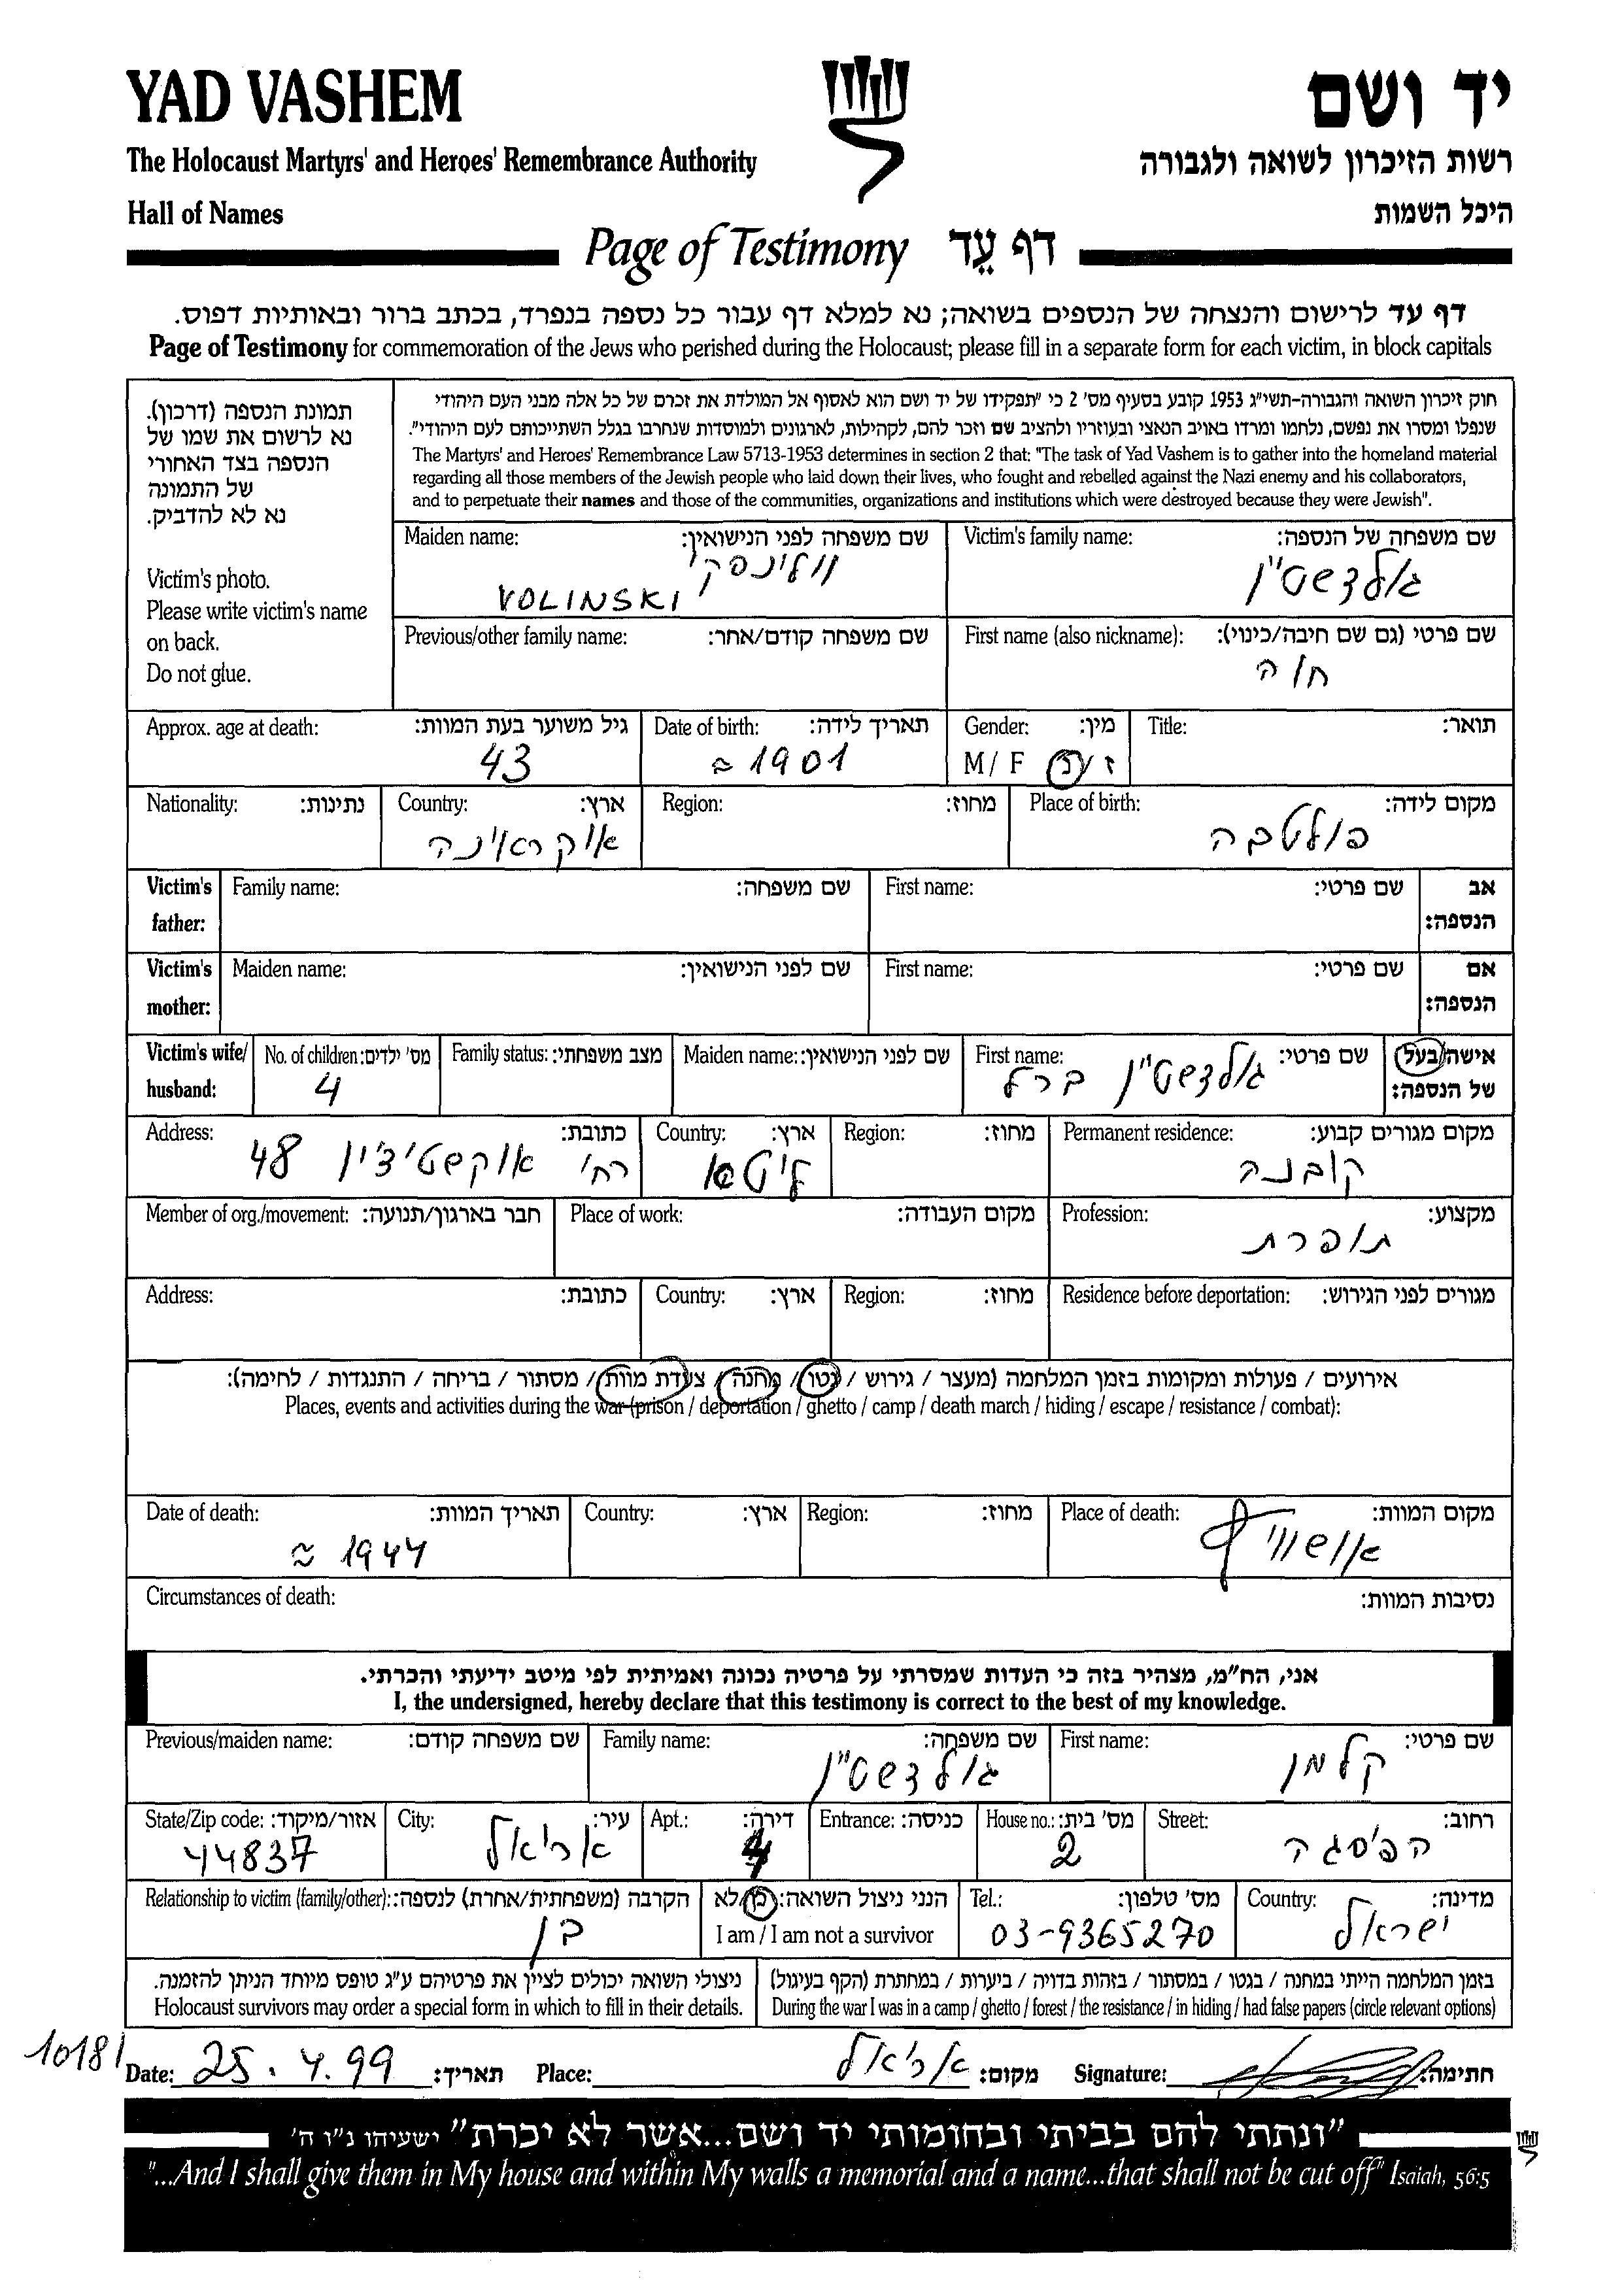 YAD VASHEM
יד ושם
The Holocaust Martyrs' and Heroes' Remembrance Authority
רשות הזיכרון לשואה ולגבורה
Hall of Names
היכל השמות
Page of Testimony דף עֵד
דף עד לרישום והנצחה של הנספים בשואה; נא למלא דף עבור כל נספה בנפרד, בכתב ברור ובאותיות דפוס.
Page of Testimony for commemoration of the Jews who perished during the Holocaust; please fill in a separate form for each victim, in block capitals
תמונת הנספה (דרכון).
נא לרשום את שמו של
הנספה בצד האחורי
של התמונה
נא לא להדביק.
Victim's photo.
Please write victim's name
on back.
Do not glue.
חוק זיכרון השואה והגבורה-תשי"ג 1953 קובע בסעיף מס' 2 כי "תפקידו של יד ושם הוא לאסוף אל המולדת את זכרם של כל אלה מבני העם היהודי
שנפלו ומסרו את נפשם, נלחמו ומרדו באויב הנאצי ובעוזריו ולהציב שם וזכר להם, לקהילות, לארגונים ולמוסדות שנחרבו בגלל השתייכותם לעם היהודי".
The Martyrs' and Heroes' Remembrance Law 5713-1953 determines in section 2 that: "The task of Yad Vashem is to gather into the homeland material
regarding all those members of the Jewish people who laid down their lives, who fought and rebelled against the Nazi enemy and his collaborators,
and to perpetuate their names and those of the communities, organizations and institutions which were destroyed because they were Jewish".
Victim's family name: שם משפחה של הנספה:
גולדשטיין
Maiden name: שם משפחה לפני הנישואין:
וולינסקי
VOLINSKI
First name (also nickname): שם פרטי (גם שם חיבה/כינוי):
חוה
Previous/other family name: שם משפחה קודם/אחר:
Title: תואר:
Gender: מין:
M / F ז / נ
Date of birth: תאריך לידה:
≈ 1901
Approx. age at death: גיל משוער בעת המוות:
43
Place of birth: מקום לידה:
פולטבה
Region: מחוז:
Country: ארץ:
אוקראינה
Nationality: נתינות:
Victim's father: אב הנספה:
First name: שם פרטי:
Family name: שם משפחה:
Victim's mother: אם הנספה:
First name: שם פרטי:
Maiden name: שם לפני הנישואין:
Victim's wife/husband: אישה/בעל של הנספה:
First name: שם פרטי:
גולדשטיין ברל
Maiden name: שם לפני הנישואין:
Family status: מצב משפחתי:
No. of children: מס' ילדים:
4
Permanent residence: מקום מגורים קבוע:
קובנה
Region: מחוז:
Country: ארץ:
ליטא
Address: כתובת:
רח' 48
Profession: מקצוע:
תופרת
Place of work: מקום העבודה:
Member of org./movement: חבר בארגון/תנועה:
Residence before deportation: מגורים לפני הגירוש:
Region: מחוז:
Country: ארץ:
Address: כתובת:
אירועים / פעולות ומקומות בזמן המלחמה (מעצר / גירוש / גטו / מחנה / צעדת מוות / מסתור / בריחה / התנגדות / לחימה):
Places, events and activities during the war (prison / deportation / ghetto / camp / death march / hiding / escape / resistance / combat):
Place of death: מקום המוות:
אושוויץ
Region: מחוז:
Country: ארץ:
Date of death: תאריך המוות:
≈ 1944
Circumstances of death: נסיבות המוות:
אני, הח"מ, מצהיר בזה כי העדות שמסרתי על פרטיה נכונה ואמיתית לפי מיטב ידיעתי והכרתי.
I, the undersigned, hereby declare that this testimony is correct to the best of my knowledge.
First name: שם פרטי:
קלמן
Family name: שם משפחה:
גולדשטיין
Previous/maiden name: שם משפחה קודם:
Street: רחוב:
הפיסגה
House no.: מס' בית:
2
Entrance: כניסה:
Apt.: דירה:
4
City: עיר:
אריאל
State/Zip code: אזור/מיקוד:
44837
Country: מדינה:
ישראל
Tel.: מס' טלפון:
03-9365270
הנני ניצול השואה: כן/לא
I am / I am not a survivor
Relationship to victim (family/other): הקרבה (משפחתית/אחרת) לנספה:
בן
בזמן המלחמה הייתי במחנה / בגטו / במסתור / בזהות בדויה / ביערות / במחתרת (הקף בעיגול)
During the war I was in a camp / ghetto / forest / the resistance / in hiding / had false papers (circle relevant options)
ניצולי השואה יכולים לציין את פרטיהם ע"ג טופס מיוחד הניתן להזמנה.
Holocaust survivors may order a special form in which to fill in their details.
10181
Date: 25.4.99 תאריך: Place: אריאל מקום: Signature: חתימה:
"ונתתי להם בביתי ובחומותי יד ושם...אשר לא יכרת" ישעיהו נ"ו ה'
"...And I shall give them in My house and within My walls a memorial and a name...that shall not be cut off" Isaiah, 56:5